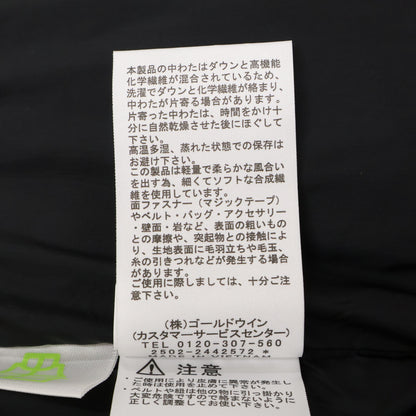 本製品の中わたはダウンと高機能
化学繊維が混合されているため、
洗濯でダウンと化学繊維が絡まり、
中わたが片寄る場合があります。
片寄った中わたは、時間をかけ十
分に自然乾燥させた後にほぐして
下さい。
高温多湿、蒸れた状態での保存は
お避け下さい。
この製品は軽量で柔らかな風合い
を出す為、細くてソフトな合成繊
維を使用しています。
面ファスナー（マジックテープ）
やベルト・バッグ・アクセサリー
・壁面・岩など、表面の粗いもの
との摩擦や、突起物との接触によ
り、生地表面に毛羽立ちや毛玉、
糸の引きつれなどが発生する場合
がございます。
ご使用に際しましては、十分ご注
意下さい。
（株）ゴールドウイン
（カスタマーサービスセンター）
TEL 0120-307-560
2502-2442572 *
MADE IN VIETNAM
⚠注意
・ご使用により皮膚に異常が発生し
た時は使用を止めて下さい。